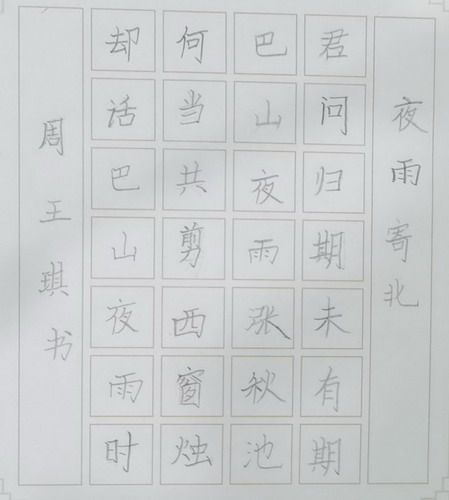 夜雨寄北
君问归期未有期
巴山夜雨涨秋池
何当共剪西窗烛
却话巴山夜雨时
周王琪书